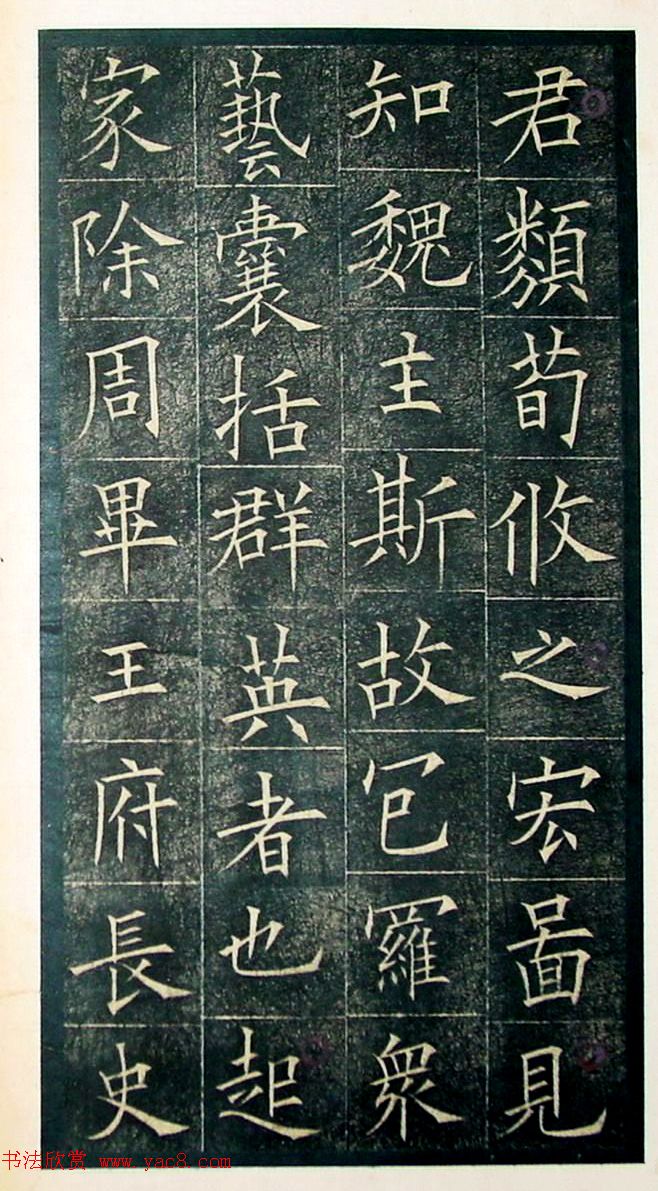 君類荀攸之宏啚見
知魏主斯故冝羅衆
藝囊括群英者也起
家除周畢王府長史
书法欣赏 www.yac8.com